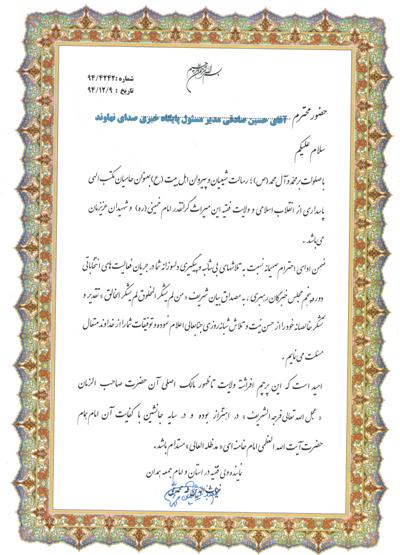 بسم الله الرحمن الرحیم
شماره: ۹۴/۴۲۴۲
تاریخ : ۹۴/۱۲/۹
حضور محترم
آقای حسین صادقی مدیر مسئول پایگاه خبری صدای نهاوند
سلام علیکم
با صلوات بر محمد و آل محمد (ص)؛ رسالت شیعیان و پیروان اهل بیت (ع) بعنوان حامیان مکتب الهی
پاسداری از انقلاب اسلامی و ولایت فقیه این میراث گرانقدر امام خمینی (ره) و شهیدان عزیزمان
می باشد.
ضمن ادای احترام صمیمانه نسبت به تلاشهای بی شائبه و پیگیری دلسوزانه شما در جریان فعالیت های انتخاباتی
دوره پنجم مجلس خبرگان رهبری، به مصداق بیان شریف «من لم یشکر المخلوق لم یشکر الخالق» تقدیر و
تشکر خالصانه خود را از حسن نیت و تلاش شبانه روزی جنابعالی اعلام نموده و توفیقات شما را از خداوند متعال
مسئلت می نمایم.
امید است که این پرچم افراشته ولایت تا ظهور مالک اصلی آن حضرت صاحب الزمان
«عجل الله تعالی فرجه الشریف» در اهتزاز بوده و در سایه جانشین با کفایت آن امام همام
حضرت آیت الله العظمی امام خامنه ای «مد ظله العالی» مستدام باشد.
نماینده ولی فقیه در استان و امام جمعه همدان